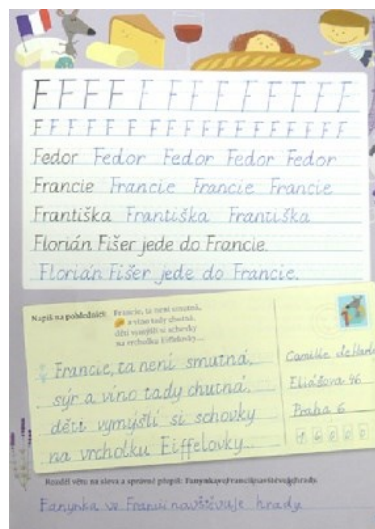 F F F F F F F F F F F F F
F F F F F F F F F F F F F F F F F F
Fedor Fedor Fedor Fedor Fedor
Francie Francie Francie Francie
Františka Františka Františka
Florián Fišer jede do Francie.
Florián Fišer jede do Francie.
Napiš na pohlednici: Francie, ta není smutná,
a víno tady chutná,
děti vymýšlí si schovky
na vrcholku Eiffelovky...
Francie, ta není smutná,
sýr a víno tady chutná,
děti vymýšlí si schovky
na vrcholku Eiffelovky...
Camille
Eliášova 46
Praha 6
1 6 0 0 0
Rozděl větu na slova a správně přepiš: Fanynkavefranciinavštěvujehrady.
Fanynka ve Francii navštěvuje hrady.